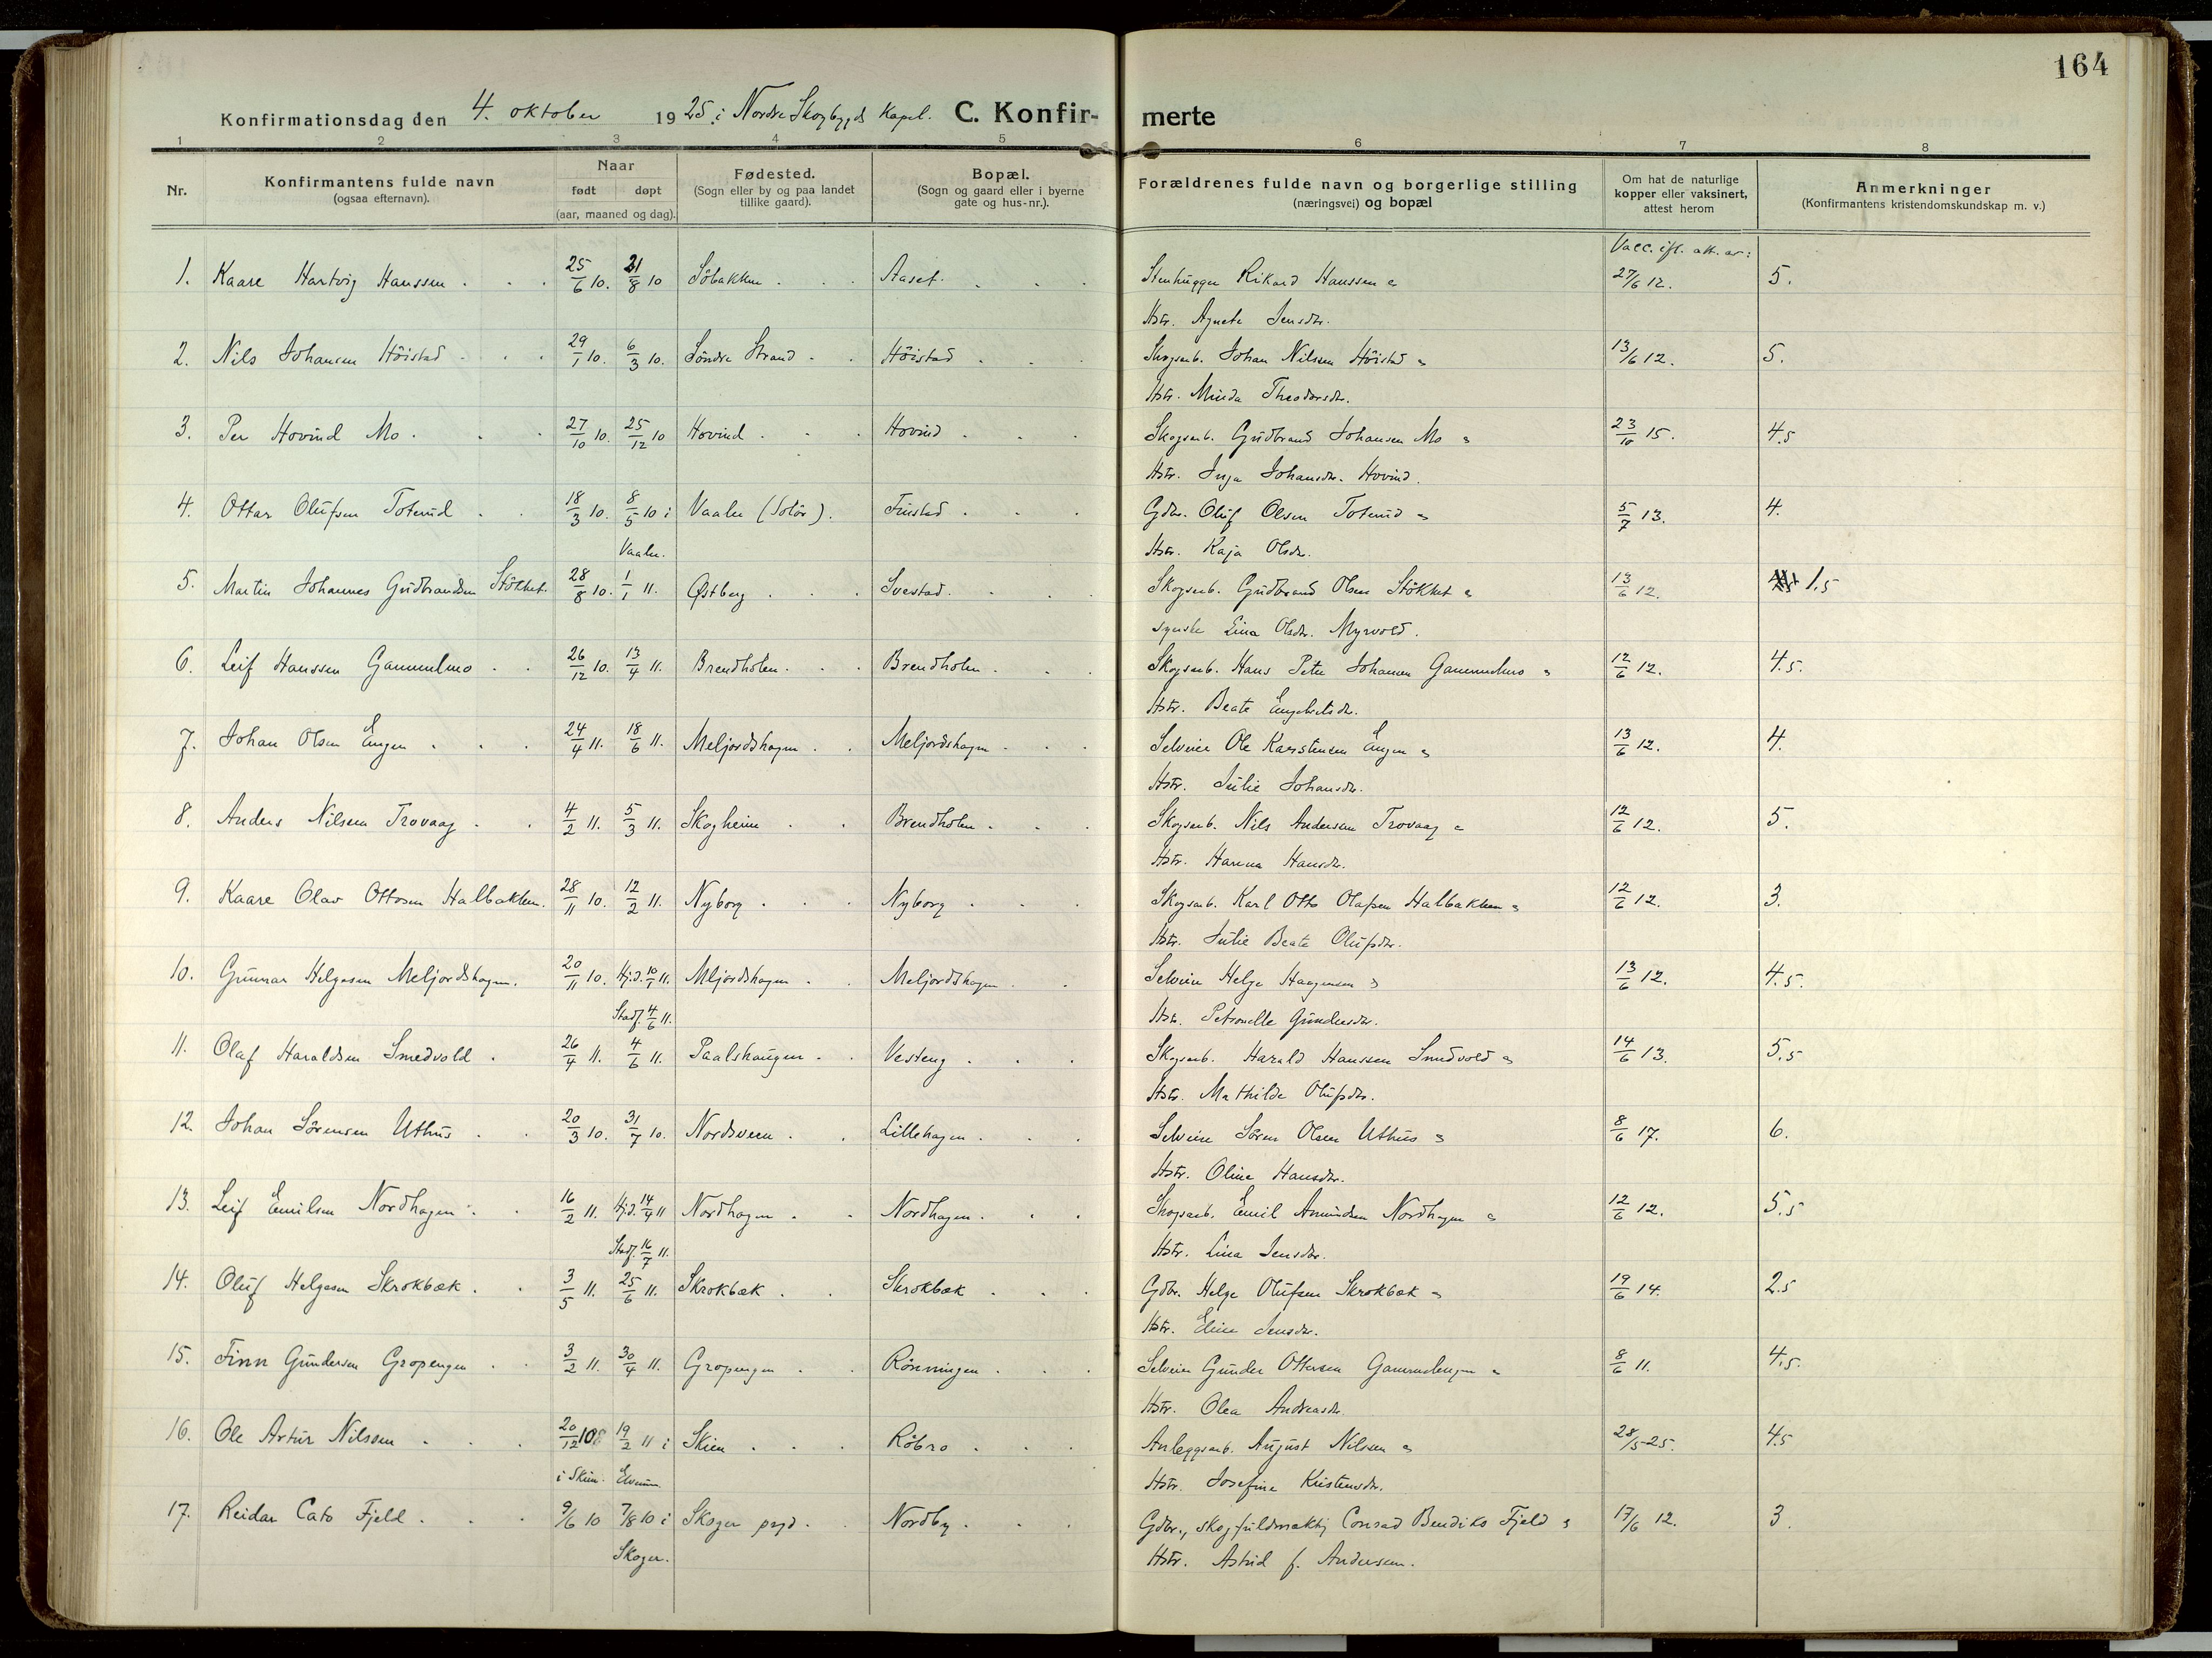 164
Konfirmationsdag den 4. oktober 1925 i Nordre Skogbygds Kapel. C. Konfir- merte
1 2 3 4 5 6 7 8
Nr. Konfirmantens fulde navn (ogsaa efternavn). Naar født døpt (aar, maaned og dag). Fødested. (Sogn eller by og paa landet tillike gaard). Bopæl. (Sogn og gaard eller i byerne gate og hus-nr.). Forældrenes fulde navn og borgerlige stilling (næringsvei) og bopæl Om hat de naturlige kopper eller vaksinert, attest herom Anmerkninger (Konfirmantens kristendomskundskap m. v.)
Vacc. ifl. att. av:
1. Kaare Hartvig Hanssen 25/6 10. 21/8 10 Söbakken Aaset. Stenhugger Rikard Hanssen & 27/6 12. 5.
Hstr. Agnete Jensdtr.
2. Nils Johansen Höistad 29/1 10. 6/3 10. Söndre Strand Höistad Skogsarb. Johan Nilsen Höistad & 13/6 12. 5.
Hstr. Minda Theodorsdtr.
3. Per Hovind Mo 27/10 10. 25/12 10 Hovind Hovind Skogsarb. Gudbrand Johansen Mo & 23/10 15. 4.5
Hstr. Inga Johansdtr. Hovind.
4. Ottar Olufsen Toterud 18/3 10. 8/5 10 i Vaaler (Solör). Finstad Gdbr. Oluf Olsen Toterud & 5/7 13. 4.
Vaaler. Hstr. Kaja Olsdtr.
5. Martin Johannes Gudbrandsen Stökket. 28/8 10. 1/1 11. Østberg Svestad. Skogsarb. Gudbrand Olsen Stökket & 13/6 12. 1.5
syerske Lina Olsdtr. Myrvold.
6. Leif Hanssen Gammelmo 26/12 10. 13/4 11. Brendholen Brendholen Skogsarb. Hans Peter Johansen Gammelmo & 12/6 12. 4.5.
Hstr. Beate Engebretsdtr.
7. Johan Olsen Engen 24/4 11. 18/6 11. Meljordshagen Meljordshagen Selveier Ole Karstensen Engen & 13/6 12. 4.
Hstr. Julie Johansdtr.
8. Anders Nilsen Trovaag 4/2 11. 5/3 11. Skogheim Brendholen Skogsarb. Nils Andersen Trovaag & 12/6 12. 5.
Hstr. Hanna Hansdtr.
9. Kaare Olav Ottosen Halbakken. 28/11 10. 12/2 11. Nyborg Nyborg Skogsarb. Karl Otto Olafsen Halbakken & 12/6 12. 3.
Hstr. Julie Beate Olufsdtr.
10. Gunnar Helgesen Meljordshagen. 20/11 10. Hj.d. 10/1 11. Mljordshagen Meljordshagen Selveier Helge Haagensen & 13/6 12. 4.5.
Stadf. 4/6 11. Hstr. Petronelle Gundersdtr.
11. Olaf Haraldsen Smedvold 26/4 11. 4/6 11. Paalshaugen Vesteng Skogsarb. Harald Hanssen Smedvold & 14/6 13. 5,5
Hstr. Mathilde Olufsdtr.
12. Johan Sörensen Uthus 20/3 10. 31/7 10. Nordsveen Lillehagen Selveier Sören Olsen Uthus & 8/6 17. 6.
Hstr. Oline Hansdtr.
13. Leif Emilsen Nordhagen 16/2 11. Hj.d. 14/4 11 Nordhagen Nordhagen Skogsarb. Emil Amundsen Nordhagen & 12/6 12. 5,5
Stadf. 16/7 11. Hstr. Lina Jensdtr.
14. Oluf Helgesen Skrokbæk 3/5 11. 25/6 11. Skrokbæk Skrokbæk Gdbr. Helge Olufsen Skrokbæk & 19/6 14. 2.5
Hstr. Eline Jensdtr.
15. Finn Gundersen Gropengen 3/2 11. 30/4 11. Gropengen Rönningen Selveier Gunder Ottersen Gammelengen & 8/6 11. 4,5.
Hstr. Olea Andreasdtr.
16. Ole Artur Nilssen 20/12 10 19/2 11 i Skien Röbro Anleggsarb. August Nilsen & 28/5-25. 4.5
i Skien. Elverum. Hstr. Josefine Kristensdtr.
17. Reidar Cato Fjeld 9/6 10 7/8 10 i Skoger prgd. Nordby Gdbr., skogfuldmæktig Conrad Bendiks Fjeld & 17/6 12. 3.
Skoger. Hstr. Astrid f. Andersen.